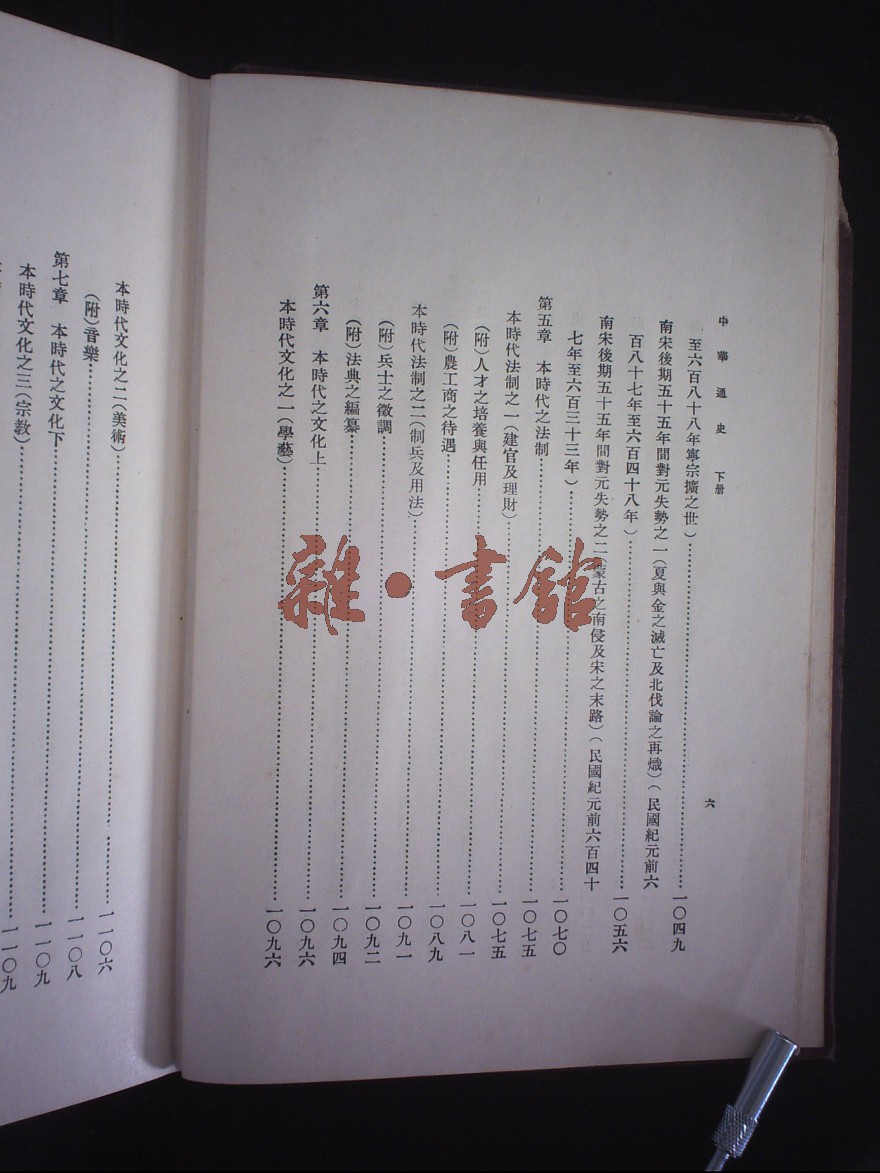 中華通史 下册
六
至六百八十八年寧宗擴之世)……一〇四九
南宋後期五十五年間對元失勢之一(夏與金之滅亡及北伐論之再熾)(民國紀元前六
百八十七年至六百四十八年)……一〇五六
南宋後期五十五年間對元失勢之二(蒙古之南侵及宋之末路)(民國紀元前六百四十
七年至六百三十三年)……一〇七〇
第五章 本時代之法制……一〇七五
本時代法制之一(建官及理財)……一〇七五
(附)人才之培養與任用……一〇八一
(附)農工商之待遇……一〇八九
本時代法制之二(制兵及用法)……一〇九一
(附)兵士之徵調……一〇九二
(附)法典之編纂……一〇九四
第六章 本時代之文化上……一〇九六
本時代文化之一(學藝)……一〇九六
本時代文化之二(美術)……一一〇六
(附)音樂……一一〇八
第七章 本時代之文化下……一一〇九
本時代文化之三(宗教)……一一〇九
雜·書館